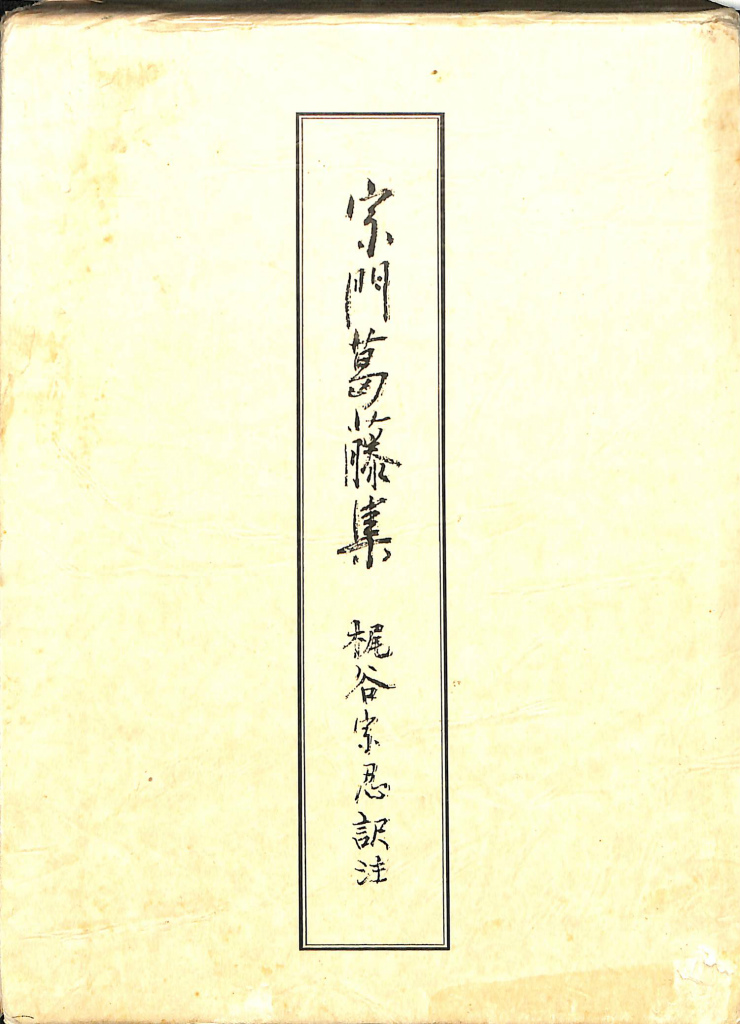 宗門葛藤集　梶谷宗忍訳注